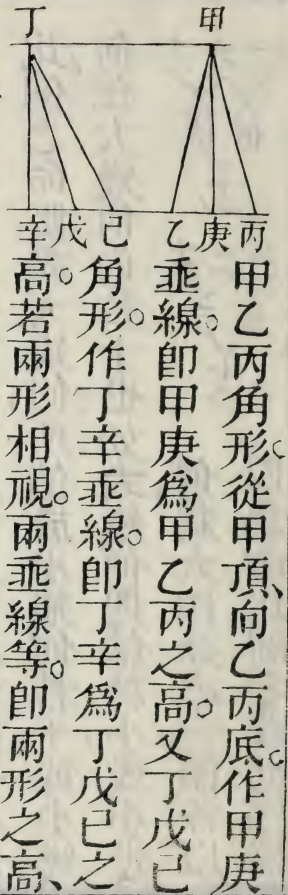 甲
丁
丙庚乙己戊辛
甲乙丙角形。從甲頂、向乙丙底。作甲庚
垂線。卽甲庚爲甲乙丙之高。又丁戊己
角形。作丁辛垂線。卽丁辛爲丁戊己之
高。若兩形相視。兩垂線等。卽兩形之高、